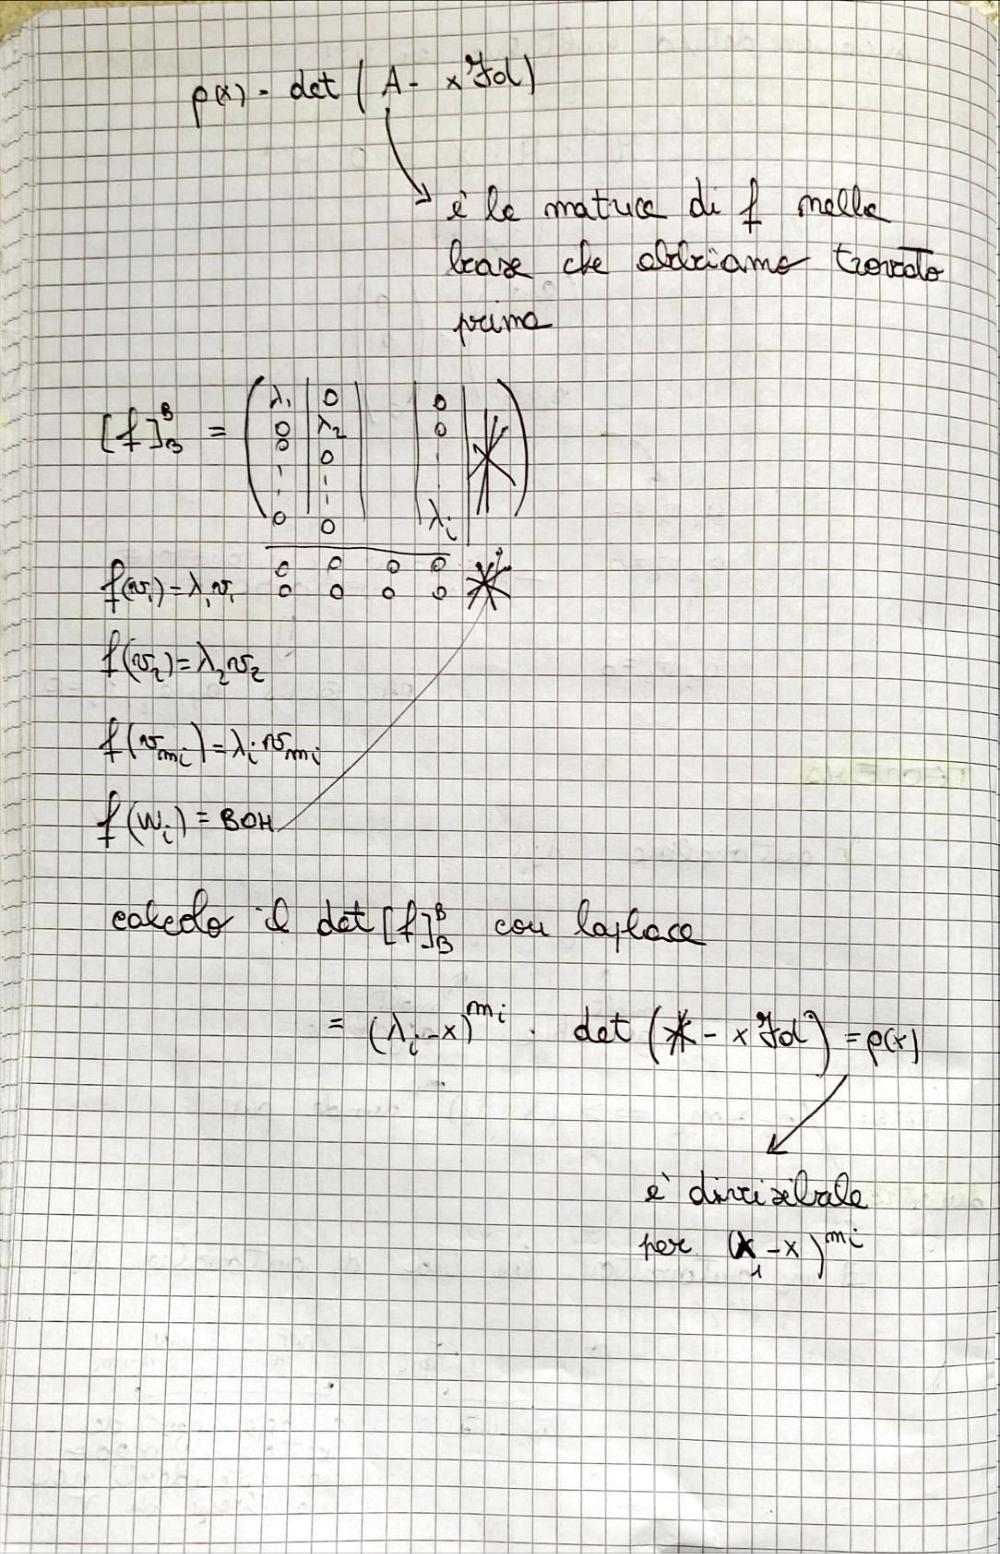 p(x) = det (A - x Id)
è la matrice di f nella
base che abbiamo trovato
prima
[f]_B^B = ( λ₁ | 0 | | 0 | * )
0 | λ₂ | | 0
0 | 0
0 | 0 | | λᵢ
0 0 0 0 *
0 0 0 0
f(v₁) = λ₁v₁
f(v₂) = λ₂v₂
f(v_mᵢ) = λᵢ v_mᵢ
f(wᵢ) = BOH
calcolo il det [f]_B^B con laplace
= (λᵢ - x)^mᵢ · det (* - x Id) = p(x)
è divisibile
per (λ₁ - x)^mᵢ